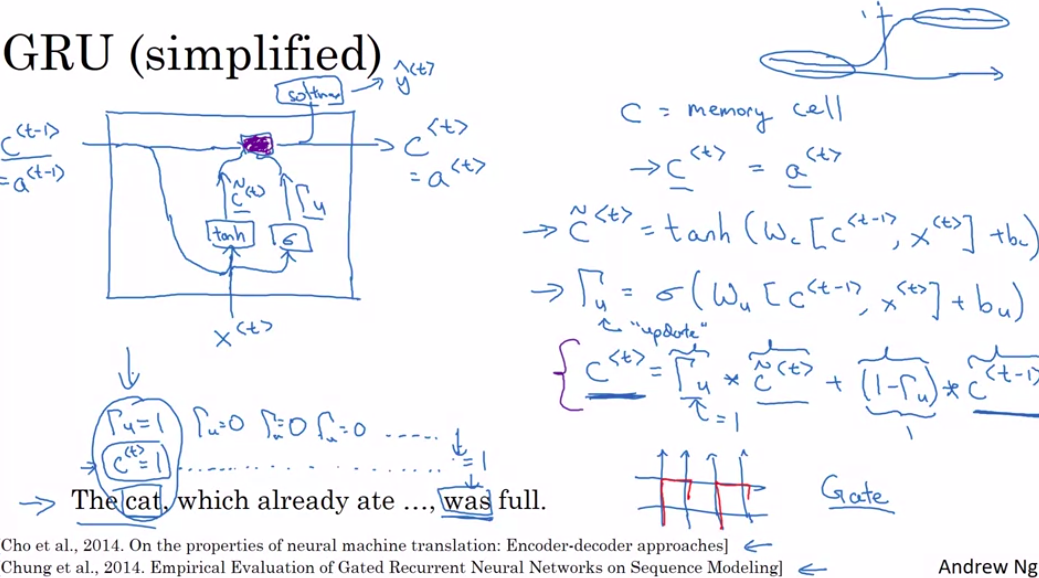 GRU (simplified)
softmax
ŷ<t>
1
c<t-1>
= a<t-1>
c̃<t>
Γu
tanh
σ
c<t>
= a<t>
x<t>
C = memory cell
→ c<t> = a<t>
→ c̃<t> = tanh (Wc [c<t-1>, x<t>] + bc)
→ Γu = σ (Wu [c<t-1>, x<t>] + bu)
"update"
c<t> = Γu * c̃<t> + (1-Γu) * c<t-1>
= 1
1
Γu=1 Γu=0 Γu=0 Γu=0 .....
c<t>=1 .......... =1
→ The cat, which already ate …, was full.
Gate
Cho et al., 2014. On the properties of neural machine translation: Encoder-decoder approaches] ←
Chung et al., 2014. Empirical Evaluation of Gated Recurrent Neural Networks on Sequence Modeling] ←
Andrew Ng